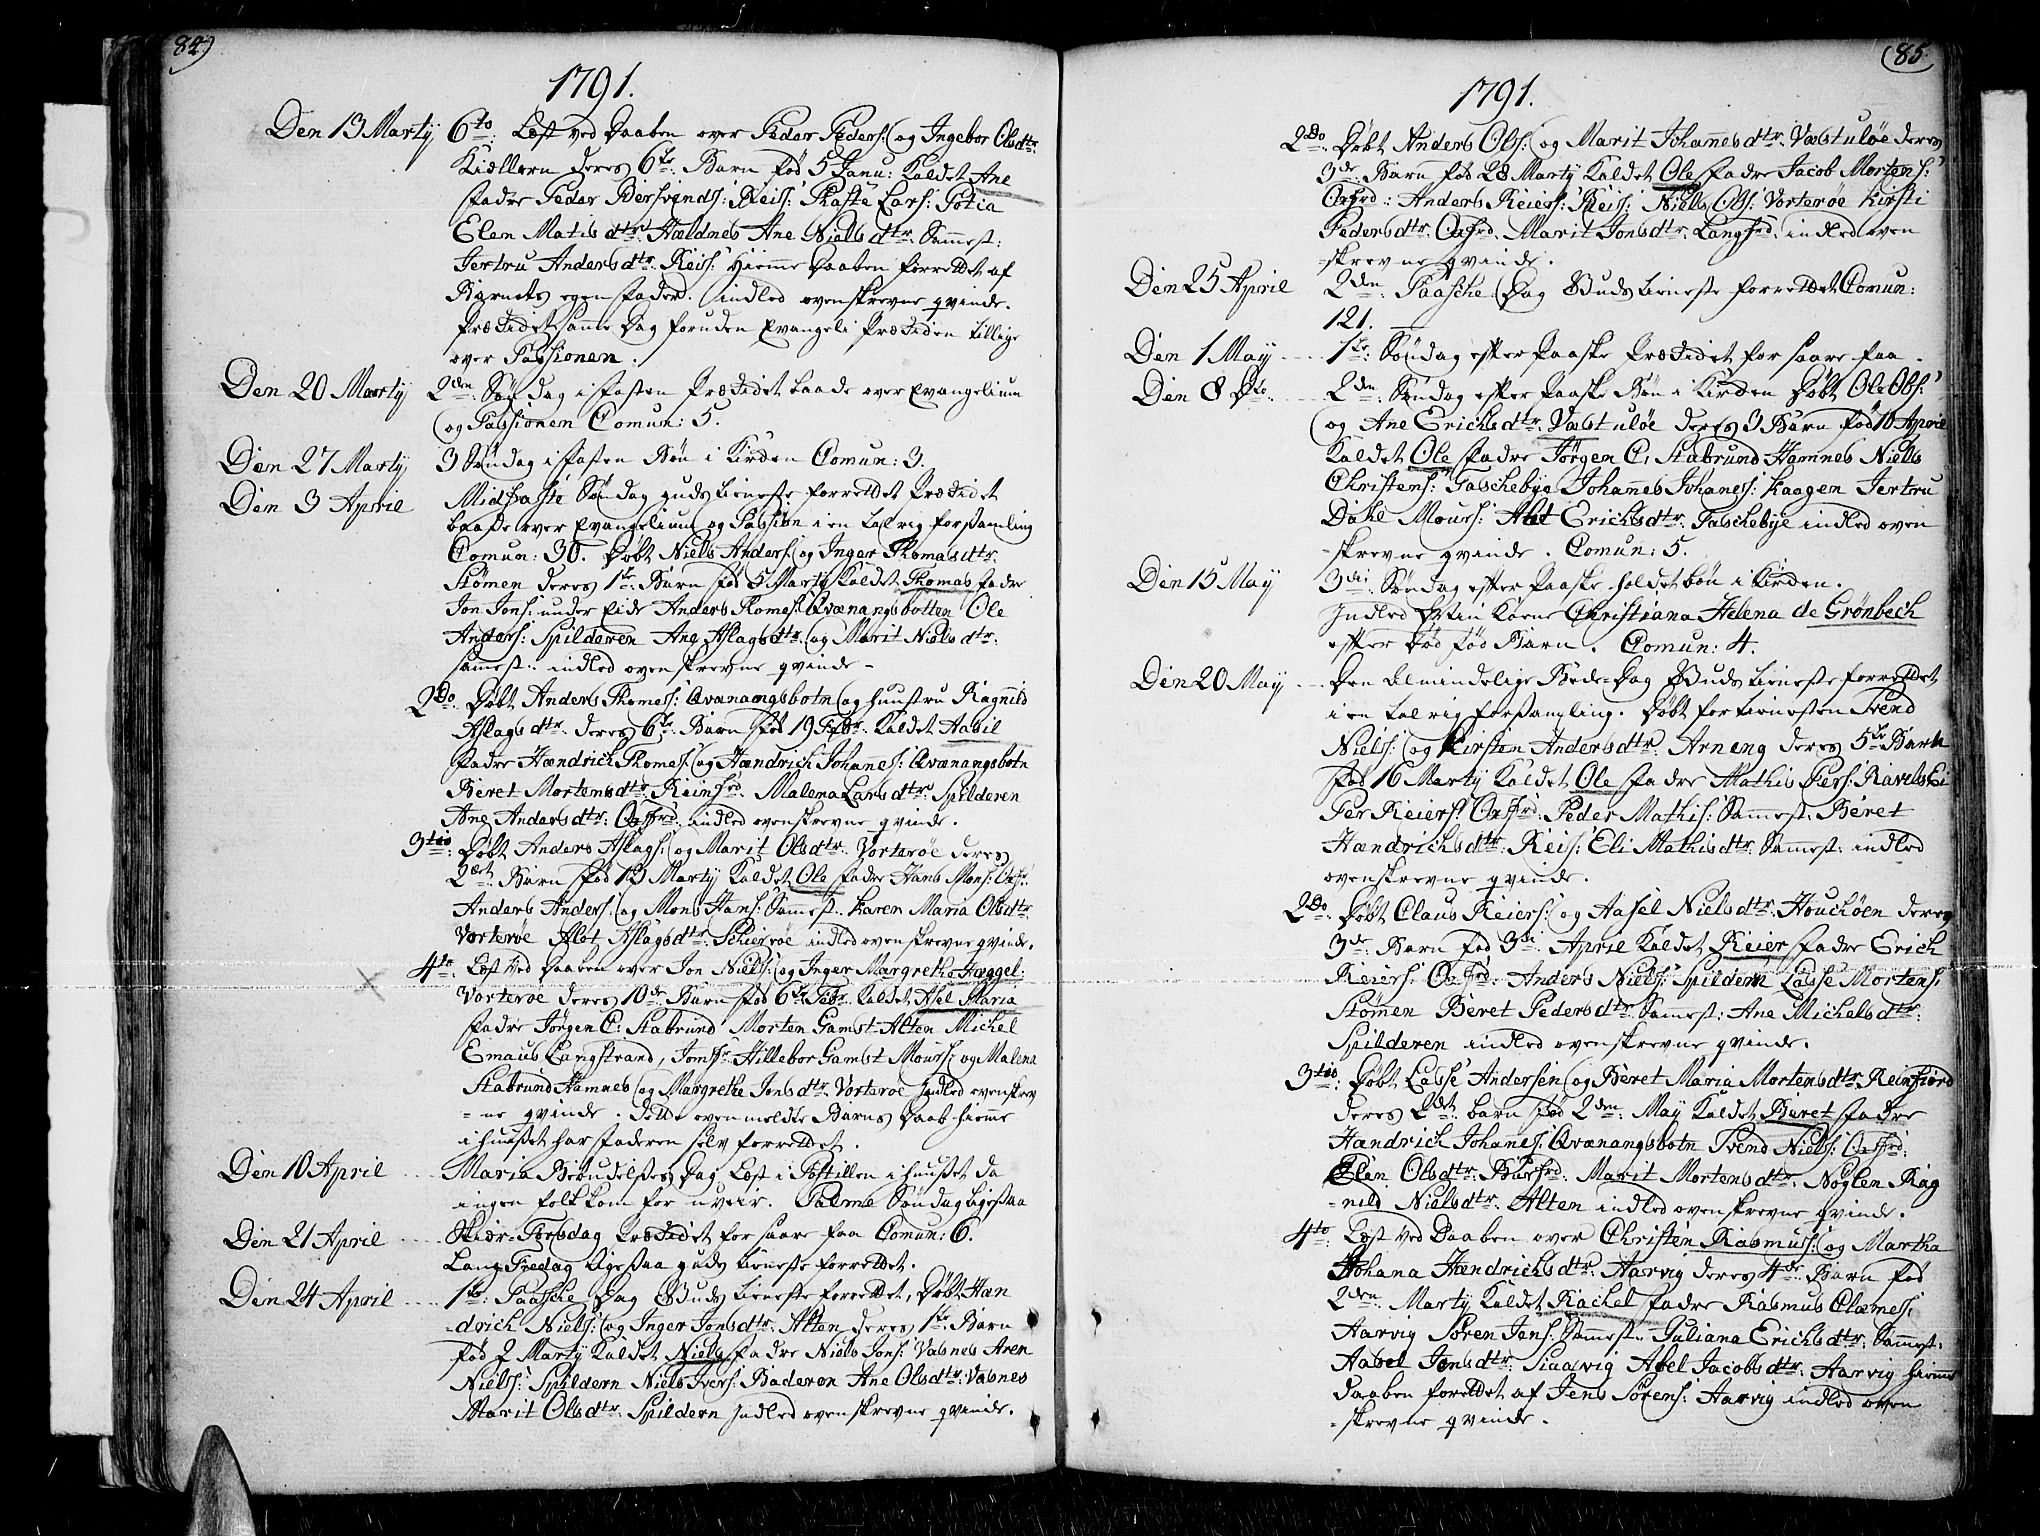 84)
1791.
Den 13 Marty 6to: Læst ved Daaben over Peder Peders: og Ingebor Olsdtr:
Kiellern deres 6te: Barn fød 5 Janu: Kaldet Ane
fadre Peder Bersvends: Reis: Lars:
Elen Matis dtr: Hældnes Ane Niels dtr: Sammest:
Jertru Anders dtr: Reis: hiemme daaben forrettet af
Barnets egen fader. indled ovenskrevne qvinde.
Prædidet samme Dag foruden Evangeli Prædiken tillige
over Passionen.
Den 20 Marty 2den: Søndag i fasten Prædidet baade over Evangelium
og Passionen Comun: 5.
Den 27 Marty 3 Søndag i fasten Bøn i Kirden Comun: 3.
Den 3 April Midfaste Søndag guds tieneste forrettet Prædidet
baade over Evangelium og Passion i en talrig forsamling
Comun: 30. Døbt Niels Anders: og Inger Thomasdtr:
Stømen deres 1te: Barn fød 5 Marty Kaldet Thomas fadre
Jon Jons: under Eide Anders Thomes: Qvænangsbotten Ole
Anders: Spilderen Ane Aslagsdtr: og Marit Niels dtr:
sammest: indled ovenskrevne qvinde -
2do Døbt Anders Thomes: Qvænangsbotn og huustru Ragnild
Aslags dtr: deres 6te Barn fød 19 Febr: Kaldet Aabil
fadre Hændrich Thomes: og Hændrich Johanes: Qvænangsbotn
Beret Mortensdtr: Reinfrd: Malena Larsdtr: Spilderen
Ane Andersdtr: Oxfrd: indled ovenskrevne qvinde.
3tio: Døbt Anders Aslags: og Marit Olsdtr: Vorterøe deres
2det: Barn fød 13 Marty Kaldet Ole fadre Hans Mons:
Anders Anders: og Mons Hans: Sammest: Karen Maria Olsdtr:
Vorterøe Aslagsdtr: Schierrøe indled ovenskrevne qvinde.
4to: Læst Ved Daaben over Jon Niels: og Inger Margrethe Hæggel:
Vorterøe deres 10de: Barn fød 6te Febr: Kaldet Abel Maria
fadre Jørgen C: Stabrund Morten Gamst Alten Michel
Emaus Langstrand, Jomfr: Hillebor Gamst Mours: og Malena
Stabrund Hamnes og Margrethe Jonsdtr: Vorterøe Indled ovenskrev
-ne qvinde. dette ovenmeldte Barns Daab hiemme
i huuset har faderen selv forrettet.
Den 10 April ... Maria Bebudelses Dag Læst i Postillen i huuset da
ingen folk kom for uveir. Palme Søndag ligesaa
Den 21 April .... Skiær-Torsdag Prædidet for saare faa Comun: 6.
Lang Fredag ligesaa guds tieneste forrettet.
Den 24 April .... 1te: Paasche Dag Guds tieneste forrettet, Døbt Hæn
-drich Niels: og Inger Jonsdtr: Alten deres 1te: Barn
fød 2 Marty Kaldet Niels fadre Niels Jons: Vasnes Aren
Niels: Spildern Niels Ivers: Baderen Ane Olsdtr: Vasnes
Marit Olsdtr: Spildern Indled ovenskrevne qvinde.
(85.
1791.
2do: Døbt Anders Ols: og Marit Johannesdtr: Væstuløe deres
3de: Barn fød 28 Marty Kaldet Ole fadre Jacob Mortens:
Oxfrd: Anders Reiers: Reis: Niels Ols: Vorterøe Kirsti
Pedersdtr: Oxfrd: Marit Jonsdtr: Langfrd: indled oven
-skrevne qvinde.
Den 25 April 2den: Paasche Dag Guds tieneste forrettet Comun:
121.
Den 1 May .... 1te: Søndag efter Paaske Prædidet for saare faa.
Den 8 Dto: .... 2den: Søndag efter Paaske Bøn i Kirden Døbt Ole Ols:
og Ane Erichsdtr: Væstuløe deres 3 Barn fød 10 April
Kaldet Ole fadre Jørgen C: Stabrund Hamnes Niels
Christens: Taschebye Johannes Johanes: Kaagen Jertru
Dahl Mours: Abel Erichsdtr: Taschebye indled oven
-skrevne qvinde. Comun: 5.
Den 15 May 3die: Søndag efter Paaske holdet bøn i Kirden.
Indled Christiana Helena de Grønbech
efter død fød Barn. Comun: 4.
Den 20 May ... Den almindelige Bede-Dag Guds tieneste forrettet
i en talrig forsamling. Døbt for tienesten Svend
Niels: og Kirsten Andersdtr: Arneng deres 5te Barn
fød 16 Marty Kaldet Ole fadre Mathis Pers:
Per Reiers: Oxfrd: Peder Mathis: Sammest: Beret
Hændrichsdtr: Reis: Eli Mathisdtr: Sammest: indled
ovenskrevne qvinde.
2do: Døbt Claus Reiers: og Aasel Nielsdtr: Houchøen deres
3de: Barn fød 3di: April Kaldet Reier fadre Erich
Reiers: Oxfrd: Anders Niels: Spildern Lasse Mortens:
Stømen Beret Pedersdtr: Samest: Ane Michelsdtr:
Spilderen indled ovenskrevne qvinde.
3tio: Døbt Lasse Andersen og Beret Maria Mortensdtr: Reinfiord
deres 2det: barn fød 2den: May Kaldet Beret fadre
Hændrich Johanes: Qvænangsbotn Svend Niels: Oxfrd:
Elen Olsdtr: Burfrd: Marit Mortensdtr: Nøglen Rag
-nild Nielsdtr: Alten indled ovenskrevne qvinde.
4to: Læst ved Daaben over Christen Rasmus: og Martha
Johana Hændrichsdtr: Aarvig deres 4de: Barn fød
2den: Marty Kaldet Rachel fadre Rasmus Clemes:
Aarvig Søren Jens: Samest: Juliana Erichsdtr: Sammest:
Aabel Jensdtr: Siaavig Abel Jacobsdtr: Aarvig hiemme
daaben forettet af Jens Sørens: Aarvig indled oven
-skrevne qvinde.